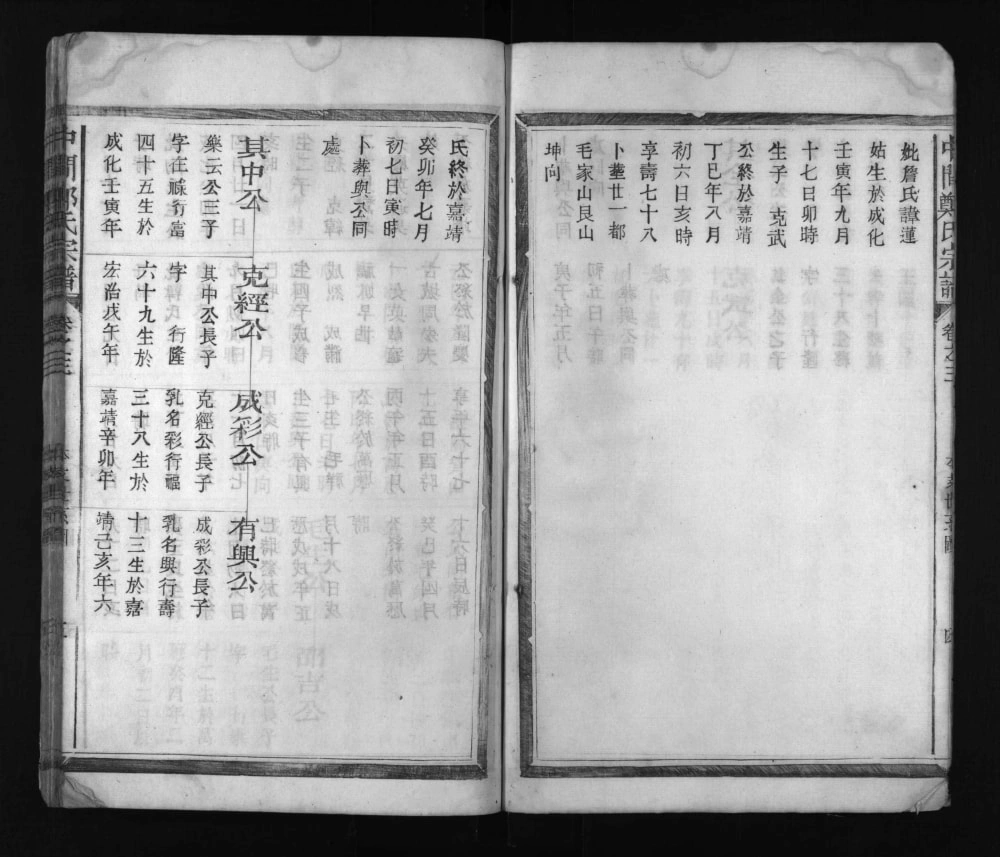 中間鄭氏宗譜
卷之三
妣詹氏諱蓮
姑生於成化
壬寅年九月
十七日卯時
生子 克武
公終於嘉靖
丁巳年八月
初六日亥時
享壽七十八
卜塟廿一都
毛家山艮山
坤向
氏終於嘉靖
癸卯年七月
初七日寅時
卜葬與公同
處
其中公
樂云公三子
字 行富
四十五生於
成化壬寅年
克經公
其中公長子
字 行隆
六十九生於
宏治戊午年
成彩公
克經公長子
乳名彩行福
三十八生於
嘉靖辛卯年
有興公
成彩公長子
乳名興行壽
十三生於嘉
靖己亥年六
中間鄭氏宗譜
卷之三